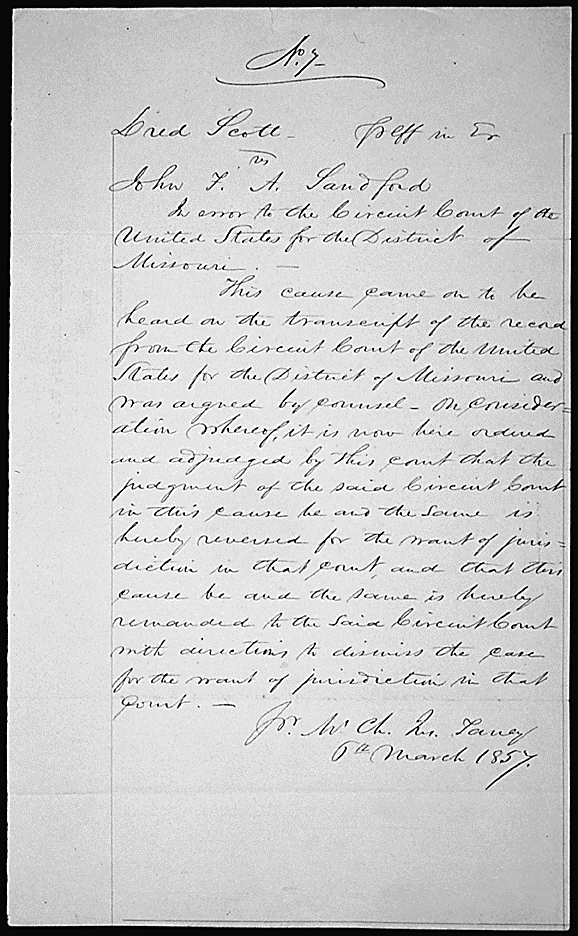 No. 7
Dred Scott - Plff in Er
vs
John F. A. Sandford
In error to the Circuit Court of the
United States for the District of
Missouri. -
This cause came on to be
heard on the transcript of the record
from the Circuit Court of the United
States for the District of Missouri and
was argued by counsel - On consider=
ation whereof, it is now here ordered
and adjudged by this court that the
judgment of the said Circuit Court
in this cause be and the same is
hereby reversed for the want of juris=
diction in that court and that this
cause be and the same is hereby
remanded to the said Circuit Court
with directions to dismiss the case
for the want of jurisdiction in that
Court. -
Pr. Mr. Ch. Jus. Taney
6th March 1857.